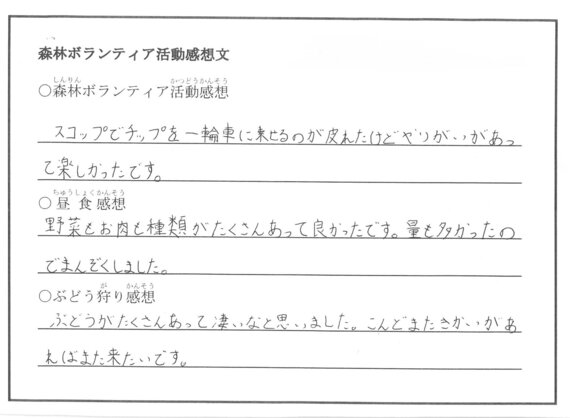 森林ボランティア活動感想文
○森林ボランティア活動感想
スコップでチップを一輪車に乗せるのが疲れたけどやりがいがあっ
て楽しかったです。
○昼食感想
野菜もお肉も種類がたくさんあって良かったです。量も多かったの
でまんぞくしました。
○ぶどう狩り感想
ぶどうがたくさんあって凄いなと思いました。こんどまたきかいがあ
ればまた来たいです。